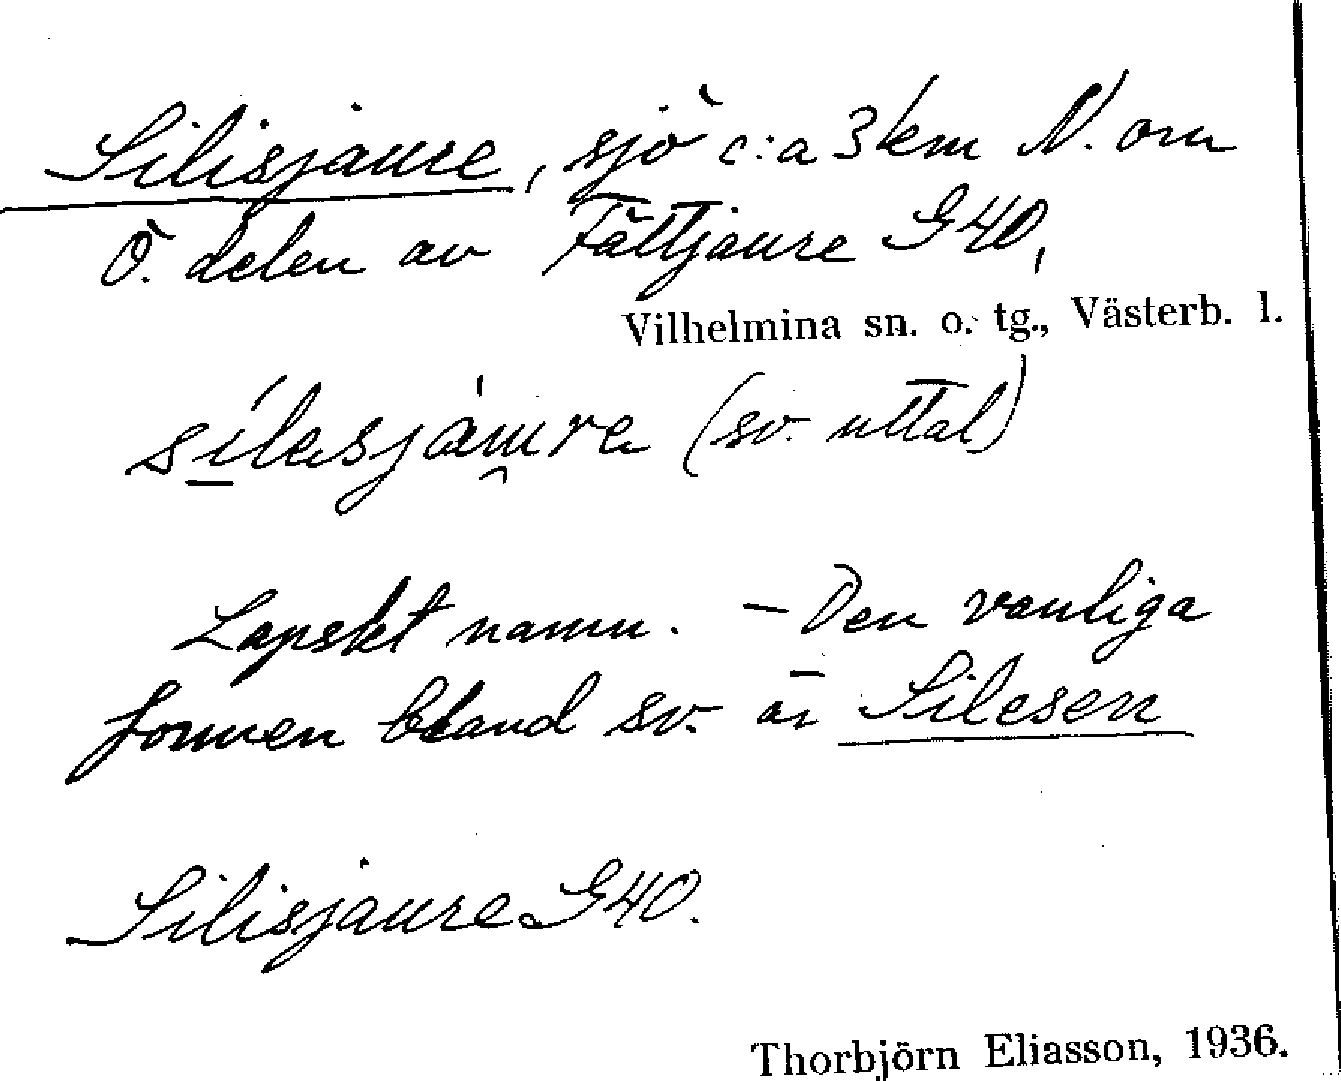 Silisjaure, sjö c:a 3 km N. om
Ö. delen av Fättjaure G40,
Vilhelmina sn. o. tg., Västerb. l.
sílesjáu̯re (sv. uttal)
Lapskt namn. – Den vanliga
formen bland sv. är Silesen
Silisjaure G40.
Thorbjörn Eliasson, 1936.